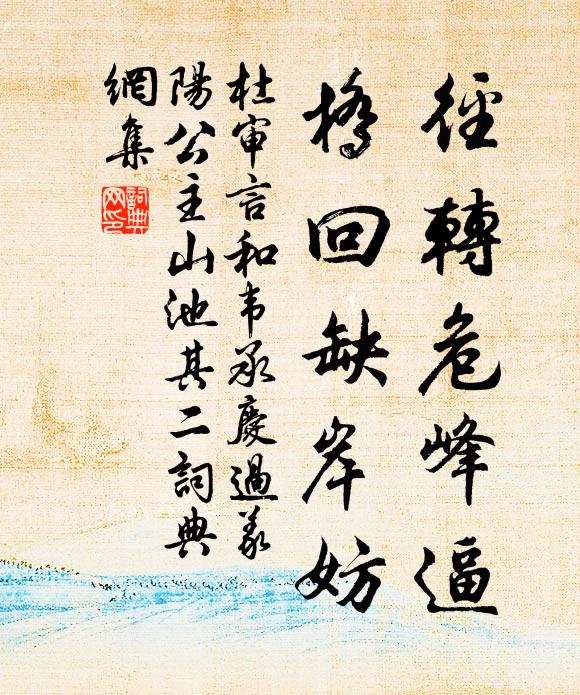 徑轉危峰逼
橋回缺岸妨
杜审言和韦承慶過義
陽公主山池其二詞典
網集
詞典
网印